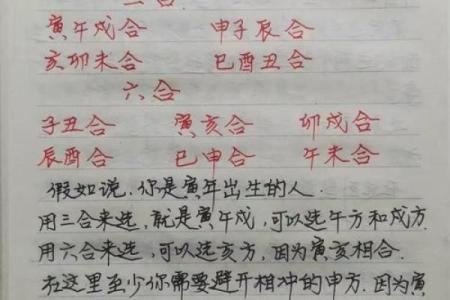 三合
寅午戌合 申子辰合
亥卯未合 巳酉丑合
六合
子丑合 寅亥合 卯戌合
辰酉合 巳申合 午未合
假如说,你是寅年出生的人.
用三合来选,就是寅午戌,可以选午方和戌方.
用六合来选,可以选亥方,因为寅亥相合.
在这里至少你需要避开相冲的申方.因为寅